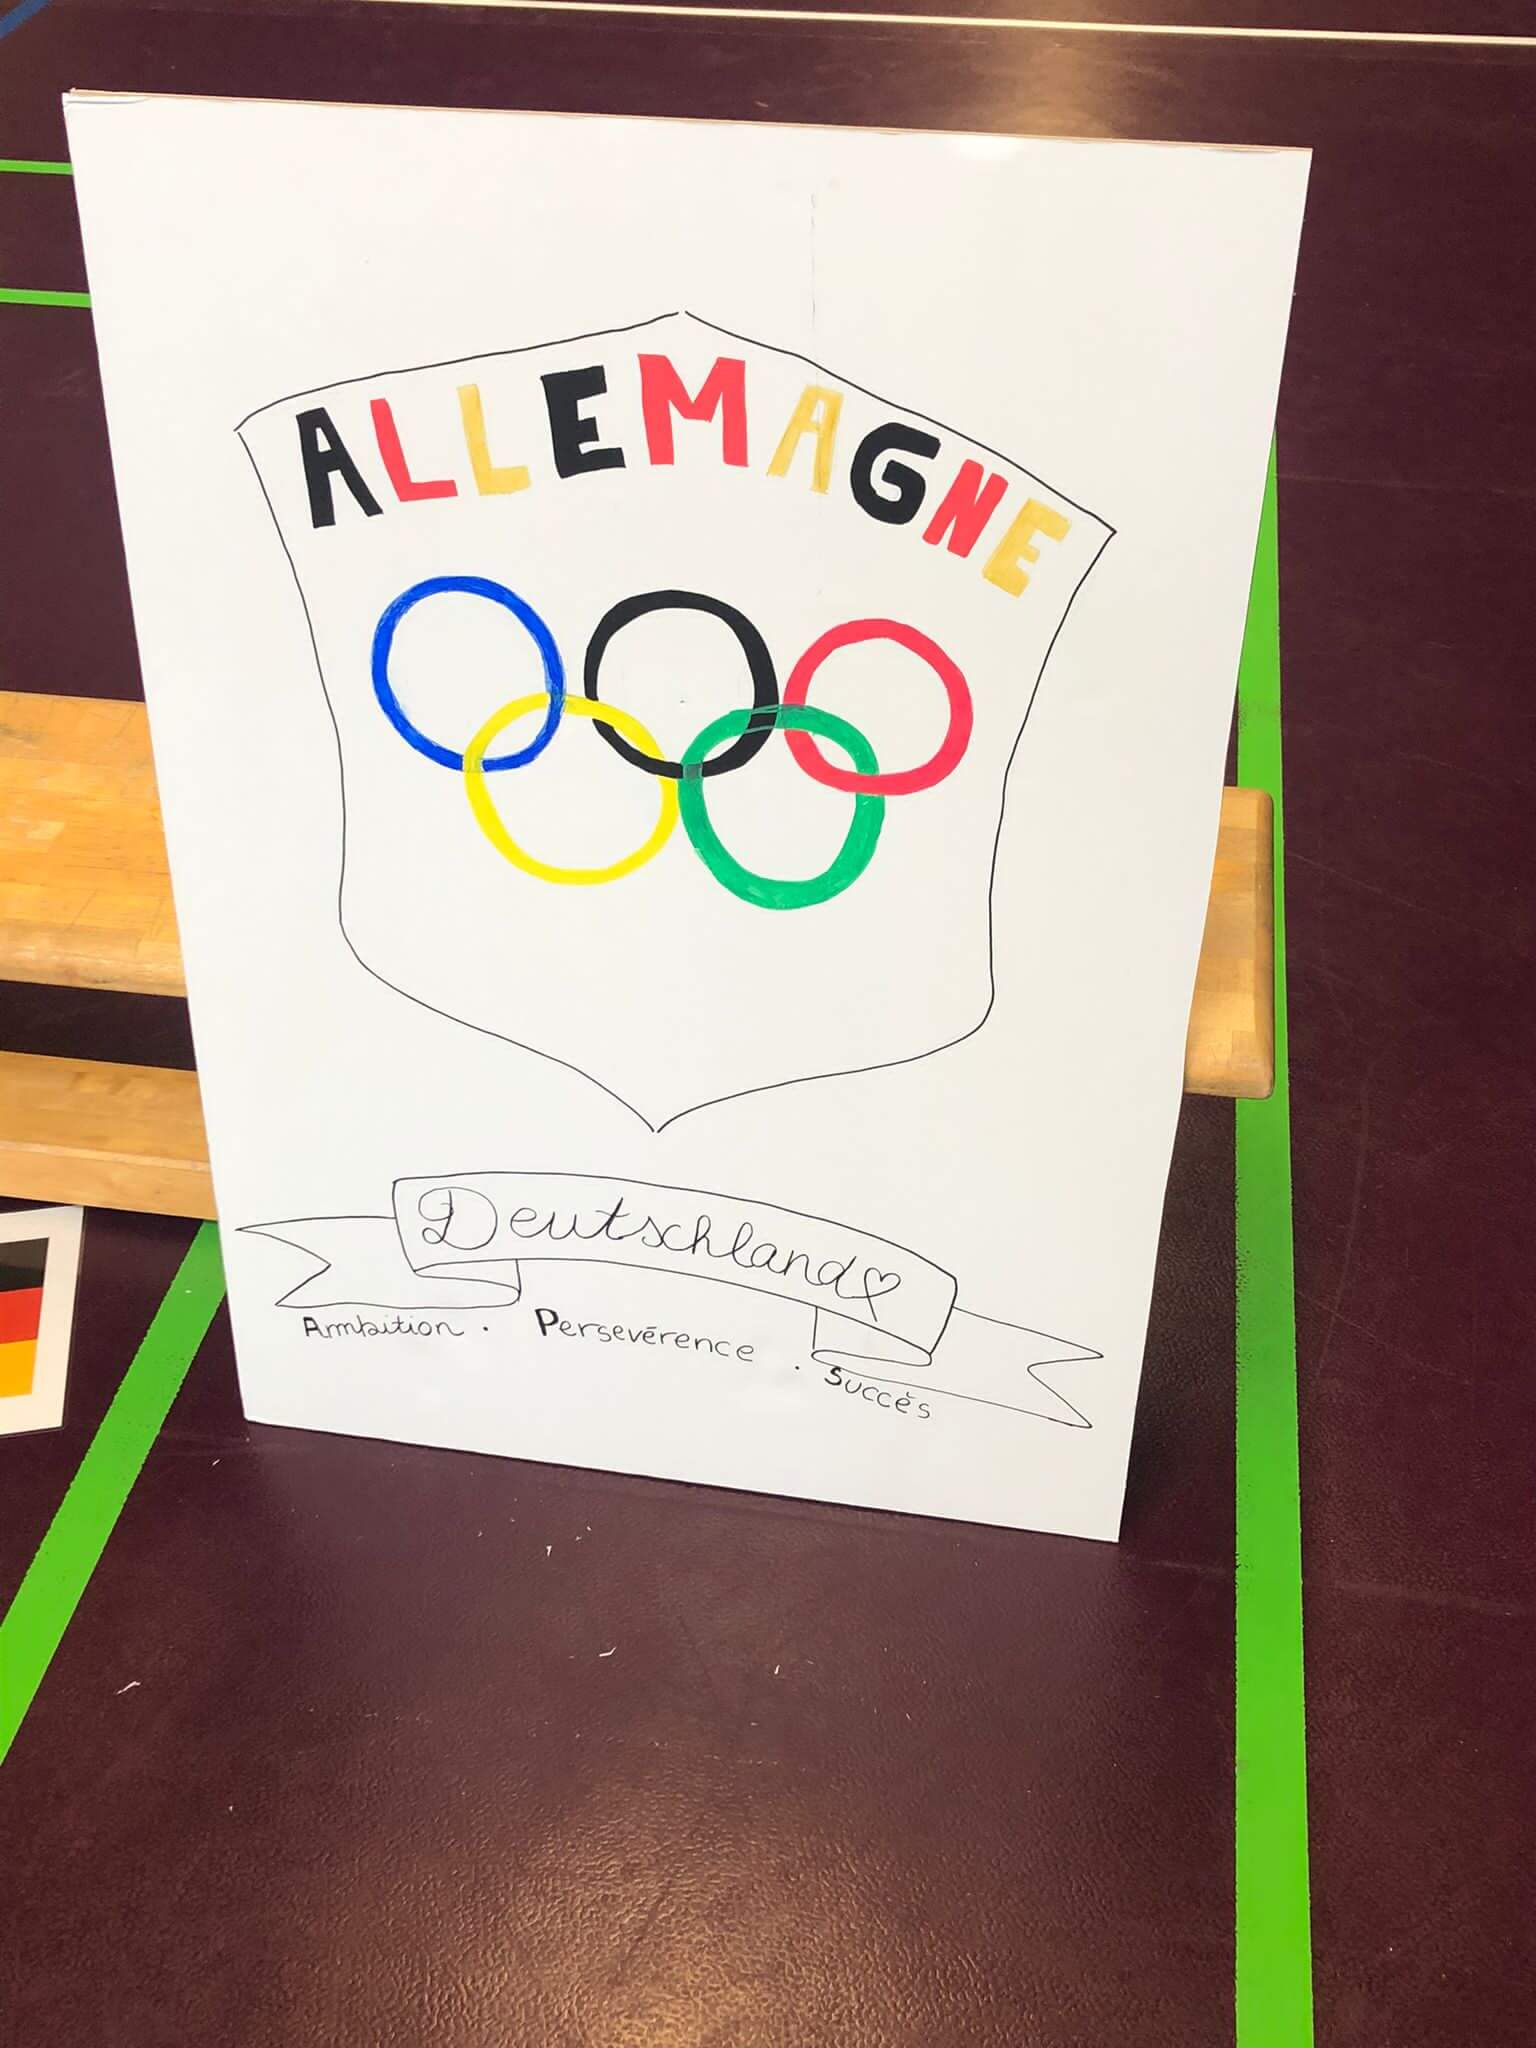 ALLEMAGNE
Deutschland
Ambition . Persevérence . Succès